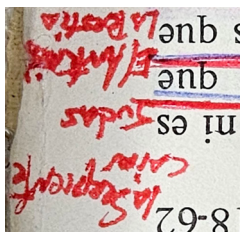 18-62 La Serpiente
Cain
ni es Judas
que El Anticri
s que La Bestia